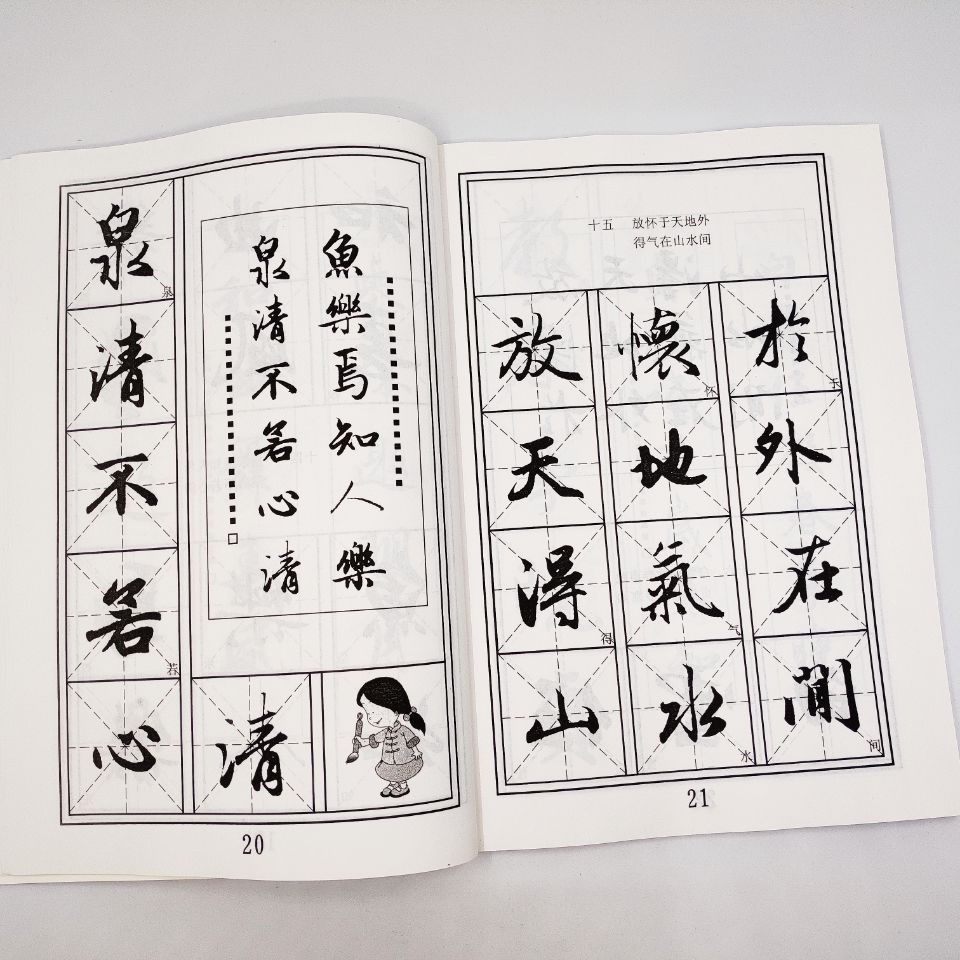 泉
泉
清
不
若
若
心
清
魚樂焉知人樂
泉清不若心清
20
十五 放怀于天地外
得气在山水间
放懷於
怀
于
天地外
得氣在
得
气
山水間
水
间
21